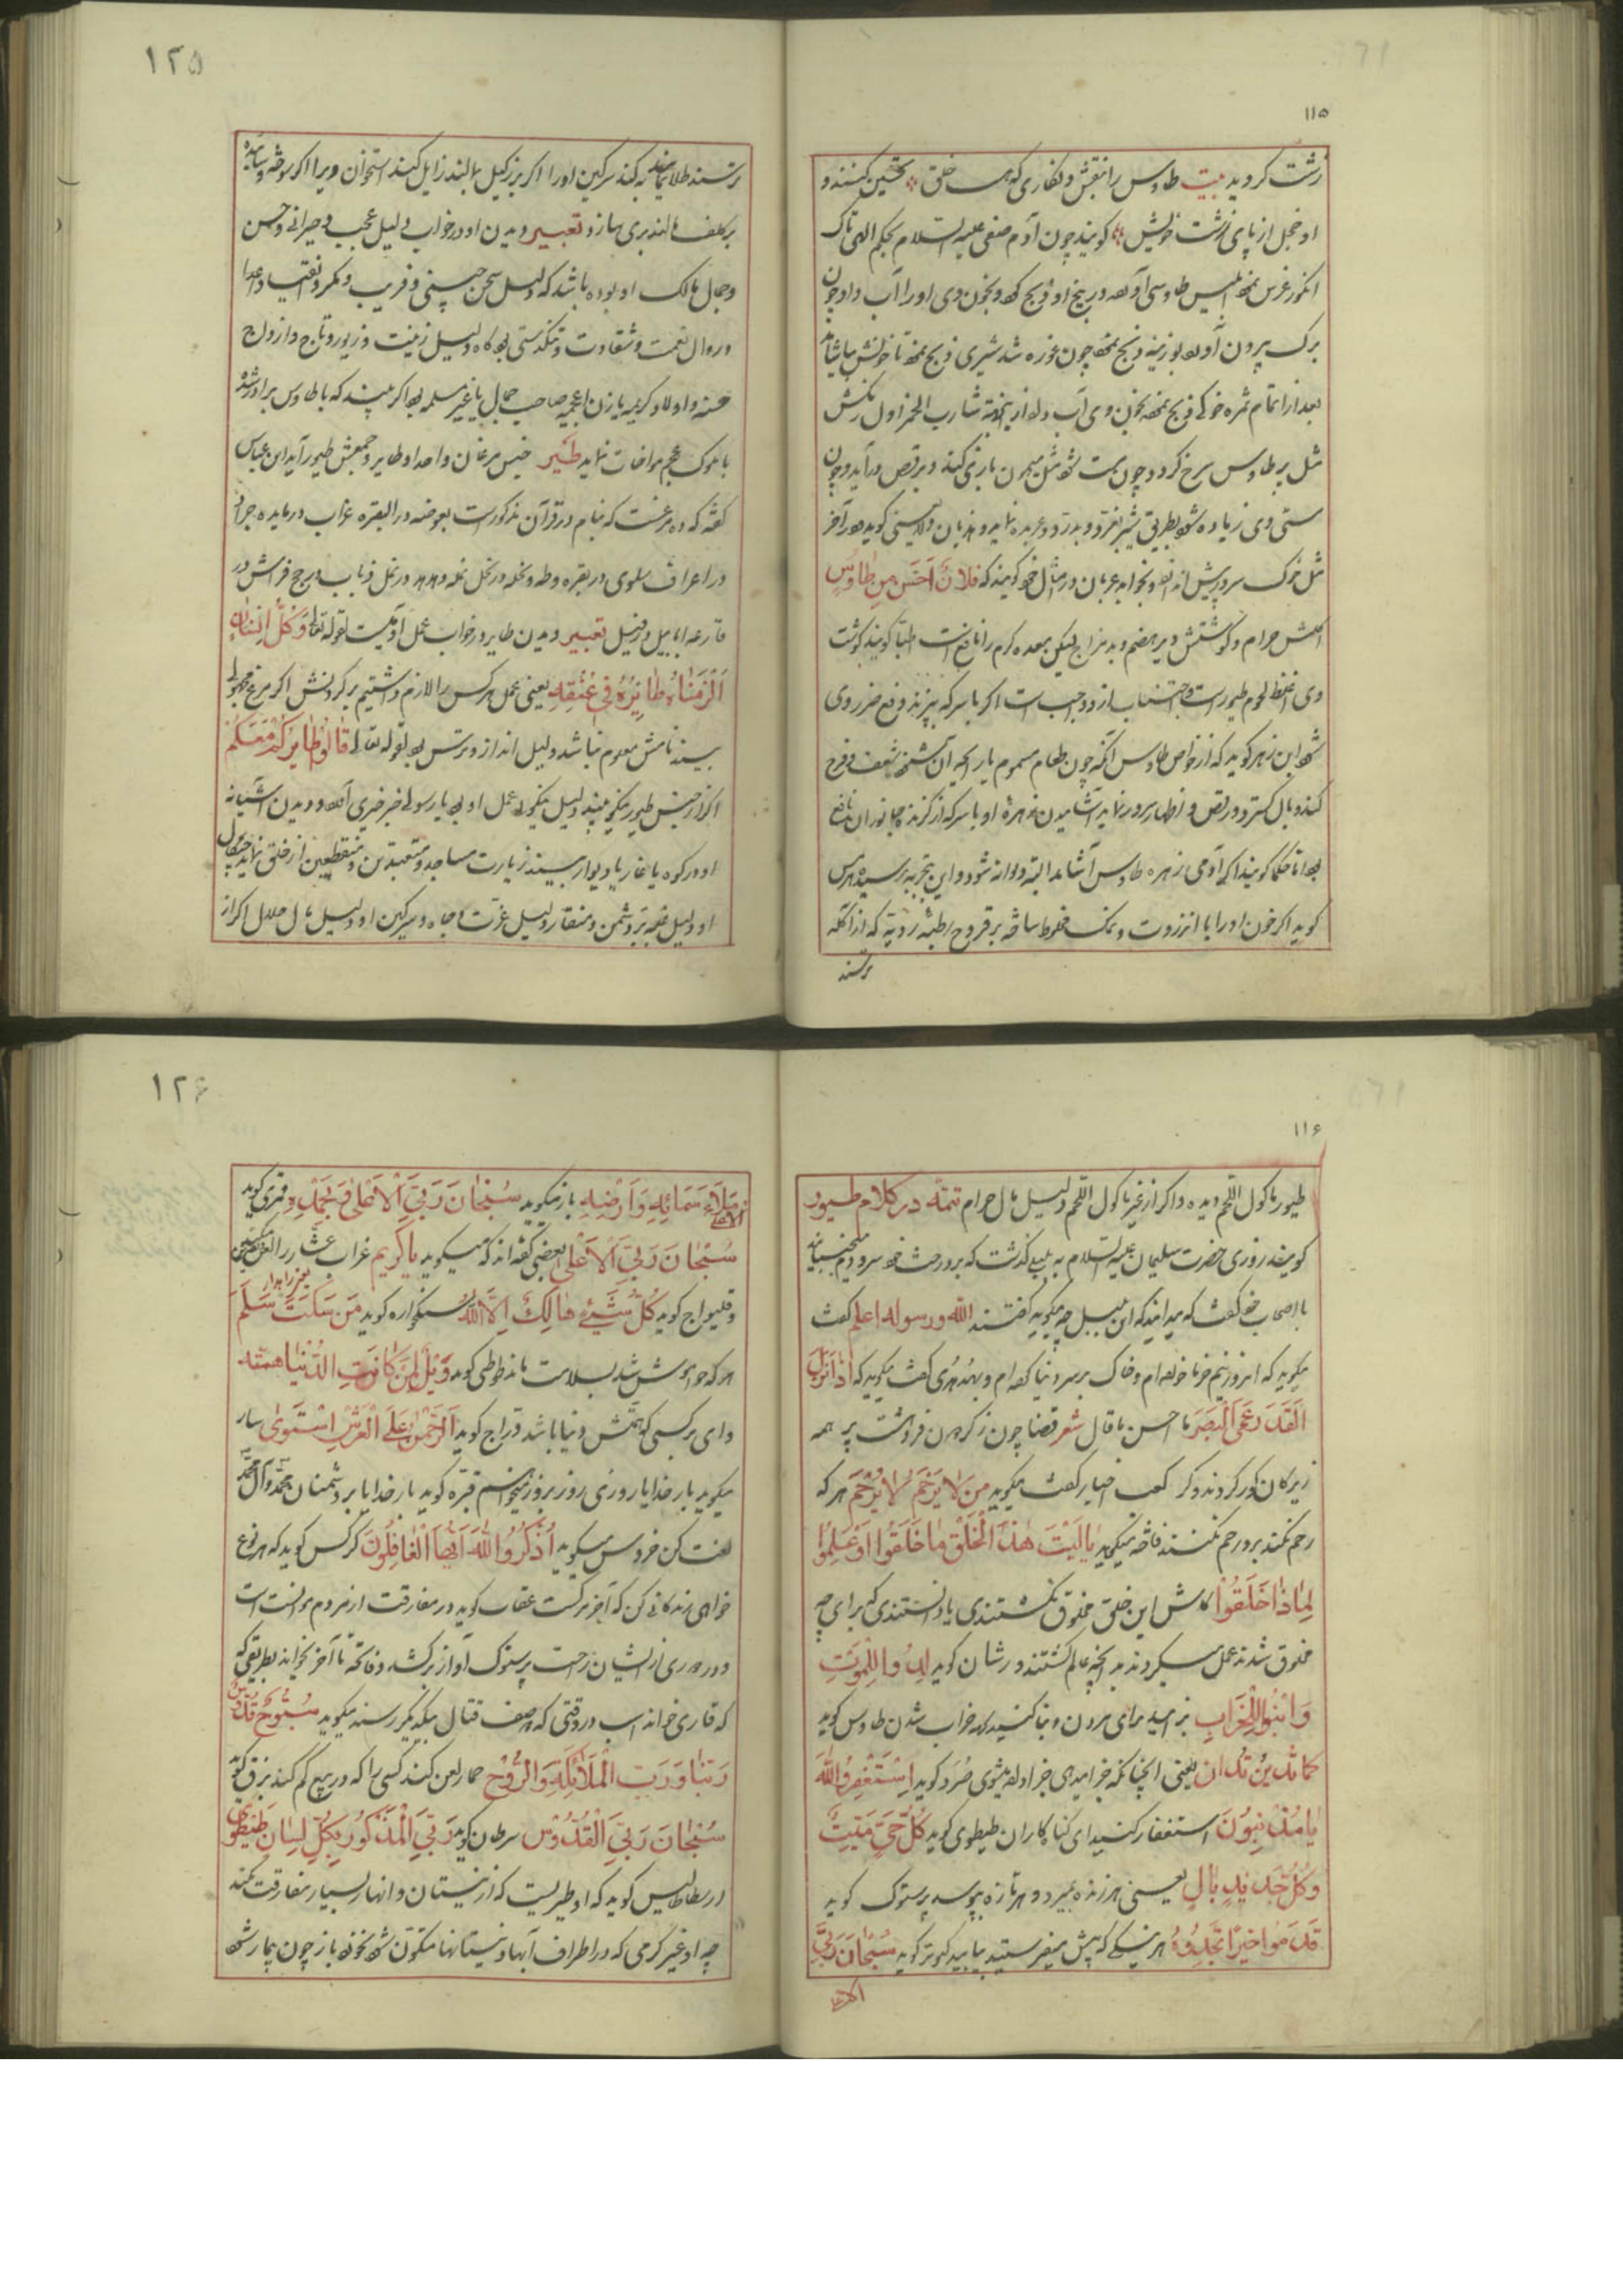 ۱۱۵
زشت کردید بیت طاوس را بنقش و نگاری که هست خلق تحسین کنند و
او خجل از پای زشت خویش کویند چون آدم صفی علیه السلام بحکم الهی تاک
انکور غرس ابلیس طاوسی آورد در بیخ او ذبح کرد و بخون وی او را آب داد چون
برک بیرون آورد بوزینه ذبح چون غوره شد شیری ذبح تا خونش
بعد از اتمام ثمره خوکی ذبح بخون وی آب داد از اینجهة شارب الخمر اول رنکش
مثل پر طاوس سرخ کردد چون مست شود مثل میمون بازی کند و برقص درآید و چون
مستی وی زیاده شود بطریق شیر بغرد و بدرد و عربده نماید و هذیان کوید و در آخر
مثل خوک سر در پیش اندازد و بخوابد عربان در مثال خود کویند که فلان احسن من طاوس
اکلش حرام و کوشتش دیر هضم و بد مزاج لیکن معده کرم را نافع است اطبا کویند کوشت
وی اغلظ لحوم طیور است و اجتناب از او واجب است اکر با سرکه بپزند رفع ضرر وی
شود ابن زهر کوید که از خواص طاوس آنکه چون طعام مسموم یا رایحه آن شنود شعف و فرح
کند و بال کسترد و رقص و اظهار سرور نماید آشامیدن زهره او با سرکه از کزنده جانوران نافع
بود اما حکما کویند اکر آدمی زهره طاوس آشامد البته دیوانه شود و این بتجربه رسیده هرمس
کوید اکر خون او را با انزروت و نمک مخلوط ساخته بر قروح رطبه ردیه که از آکله
ترسند
۱۲۵
ترسند طلا نمایند به کند سرکین او را اکر بر ثآلیل مالند زایل کند استخوان ویرا اکر سوخته و سائیده
بر کلف مالند بری سازد تعبیر دیدن او در خواب دلیل عجب و حیرانی و حسن
و جمال مالک او بوده باشد که دلیل سخن چینی و فریب و مکر و اعدا
و زوال نعمت و شقاوت و تنکدستی بود کاه دلیل زینت و زیور و تاج و ازواج
حسنه و اولاد کریمه یا زن اعجمیه صاحب جمال یا غیر مسلمه بود اکر بیند که با طاوس برادر شده
با ملوک عجم مواخات نماید طیر جنس مرغان واحد او طایر و جمعش طیور آید ابن عباس
کفته که ده مرغست که بنام در قرآن مذکور است بعوضه در البقره غراب در مایده جراد
در اعراف سلوی در بقره و طه و نحله در نحل نمله و هدهد در نمل ذباب در حج فراش در
قارعه ابابیل در فیل تعبیر دیدن طایر در خواب عمل آدمیست لقوله تعالی وَکُلَّ اِنسانٍ
اَلْزَمْناهُ طائِرَهُ فی عُنُقِهِ یعنی عمل هر کس را لازم داشتیم بر کردنش اکر مرغ مجهول
بیند نامش معلوم نباشد دلیل انذار و ترس بود لقوله تعالی قالوا طائرکم معکم
اکر از جنس طیور نیکو بیند دلیل نیکوئی عمل او بود یا رسول خیر خبری آرد و دیدن آشیانه
او در کوه یا غار یا دیوار بیند زیارت مساجد و متعبدین و منقطعین از خلق نماید چنکال
او دلیل غلبه بر دشمن و منقار دلیل عزت و جاه و سرکین او دلیل مال حلال اکر از
۱۱۶
طیور ماکول اللحم دیده و اکر از غیر ماکول اللحم دلیل مال حرام تتمه در کلام طیور
کویند روزی حضرت سلیمان علیه السلام به بلبلی کذشت که بر درخت خود سر و دم میجنبانید
با اصحاب خود کفت که میدانید که این بلبل چه میکوید کفتند الله و رسوله اعلم کفت
میکوید که امروز نیم خرما خورده‌ام و خاک بر سر دنیا کرده‌ام و هدهدی کفت میکوید که اذا نزل
القدر عمی البصر ما احسن ما قال شعر قضا چون ز کردون فروهشت پر همه
زیرکان کور کردند و کر کعب احبار کفت میکوید من لا یرحم لا یرحم هر که
رحم نکند برو رحم نکنند فاخته میکوید یا لیت هذا الخلق ما خلقوا او علموا
لماذا خلقوا کاش این خلق مخلوق نکشتندی یا دانستندی که برای چه
مخلوق شدند عمل میکردند بر آنچه عالم کشتند ورشان کوید لدوا للموت
وابنوا للخراب بزائید برای مردن و بنا کنید برای خراب شدن طاوس کوید
کما تدین تدان یعنی آنچنانکه جزا میدهی جزا داده میشوی صرد کوید استغفروا الله
یا مذنبون استغفار کنید ای کناهکاران طیطوی کوید کل حی میت
وکل جدید بال یعنی هر زنده بمیرد و هر تازه بپوسد پرستوک کوید
قدموا خیرا تجدوه هر نیکی که پیش میفرستید بیابید کبوتر کوید سبحان ربی
الاعلی
۱۲۶
الاعلی ملاء سمائه وارضه باز میکوید سبحان ربی الاعلی وبحمده قمری کوید
سبحان ربی الاعلی بعضی کفته‌اند که میکوید یا کریم غراب عشار را لعن میکند
و قلیواج کوید کل شیء هالک الا الله سنکخواره کوید من سکت سلم
هر که خاموش شد بسلامت ماند طوطی کوید ویل لمن کانت الدنیا همته
وای بر کسی که همتش دنیا باشد دراج کوید الرحمن علی العرش استوی سار
میکوید بار خدایا روزی روز بروز میخواهم قبره کوید بار خدایا بر دشمنان محمد و آل محمد
لعنت کن خروس میکوید اذکروا الله ایها الغافلون کرکس کوید که هر نوع
خواهی زندکانی کن که آخر مرکست عقاب کوید در مفارقت از مردم انست است
و دوری از ایشان راحت پرستوک آواز برکشد و فاتحه تا آخر بخواند بطریقی که
که قاری خواند اسب در وقتی که صف قتال بیکدیکر رسند میکوید سبوح قدوس
ربنا ورب الملائکة والروح حمار لعن کند کسی را که در بیع کم کند بزق کوید
سبحان ربی القدوس سرطان کوید ربی المذکور بکل لسان طیطوی
ارسطاطالیس کوید که او طیریست که از نیستان و انهار بسیار مفارقت نکند
چه او غیر کرمی که در اطراف آبها و نیستانها متکون شود نخورد باز چون بیمار شود